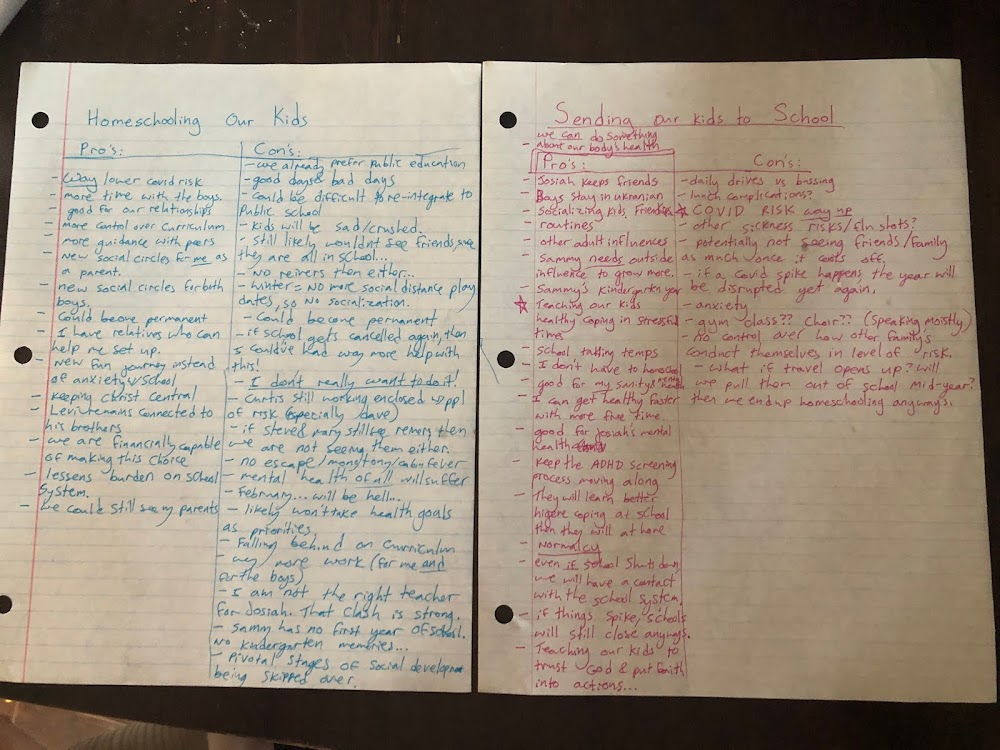 Homeschooling Our Kids
Pro's:
- Way lower covid risk
- more time with the boys.
- good for our relationships
- more control over curriculum
- more guidance with peers
- New social circles for me as
a parent.
- new social circles for both
boys.
- Could become permanent
- I have relatives who can
help me set up.
- New fun journey instead
of anxiety w/school
- Keeping Christ Central
- Levi remains connected to
his brothers
- we are financially capable
of making this choice
- lessens burden on school
system.
- we could still see my parents
Con's:
- we already prefer public education
- good days & bad days
- Could be difficult to re-integrate to
Public school
- kids will be sad/crushed.
- Still likely wouldnt see friends since
they are all in school...
- No reimers then either...
- Winter = No more social distance play
dates, so No socialization.
- Could become permanent
- if school gets cancelled again, then
I could've had way more help with
this!
- I don't really want to do it!
- Curtis still working enclosed w/ppl
of risk (especially dave)
- if Steve & Mary still see remers then
we are not seeing them either.
- no escape/monotony/cabin fever
- mental health of all will suffer
- February... will be hell...
- likely won't take health goals
as priorities
- Falling behind on Curriculum
- way more work (for me and
for the boys)
- I am not the right teacher
for Josiah. That clash is strong.
- Samm has no first year of school.
No kindergarten memories...
- Pivotal stages of social development
being skipped over.
Sending Our kids to School
we can do something
- about our body's health
Pro's:
- Josiah keeps friends
- Boys stay in ukranian
- Socializing kids, Friends
- routines
- other adult influences
- Sammy needs outside
influence to grow more.
- Sammy's Kindergarten year
- Teaching our kids
healthy coping in stressful
times
- School taking temps
- I don't have to homeschool
- good for my sanity &
- I can get healthy faster
with more free time.
- good for Josiah's mental
health
- Keep the ADHD screening
process moving along
- They will learn better
higene coping at school
then they will at home
- Normalcy
- even if school shuts down
we will have a contact
with the school system.
- if things spike, schools
will still close anyways.
- Teaching our kids to
trust God & put faith
into actions...
Con's:
- daily drives vs bussing
- lunch complications?
COVID RISK way up
- other sickness risks/flu shots?
- potentially not seeing friends/family
as much once it cools off,
- if a Covid spike happens the year will
be disrupted yet again.
- anxiety
- gym class?? Choir?? (Speaking moistly)
- no control over how other family's
conduct themselves in level of risk.
- what if travel opens up? will
we pull them out of school mid-year?
then we end up homeschooling anyways.